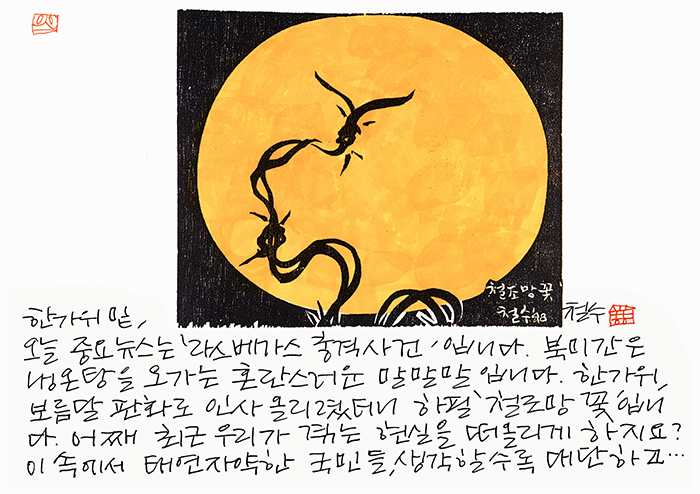 철조망 꽃
철수 93
철수
한가위 밑,
오늘 중요뉴스는 '라스베가스 총격사건'입니다. 북미간은
냉온탕을 오가는 혼란스러운 말말말입니다. 한가위,
보름달 판화로 인사 올리렸더니 하필 '철조망 꽃'입니
다. 어째 최근 우리가 겪는 현실을 떠올리게 하지요?
이 속에서 태연자약한 국민들, 생각할수록 대단하고…